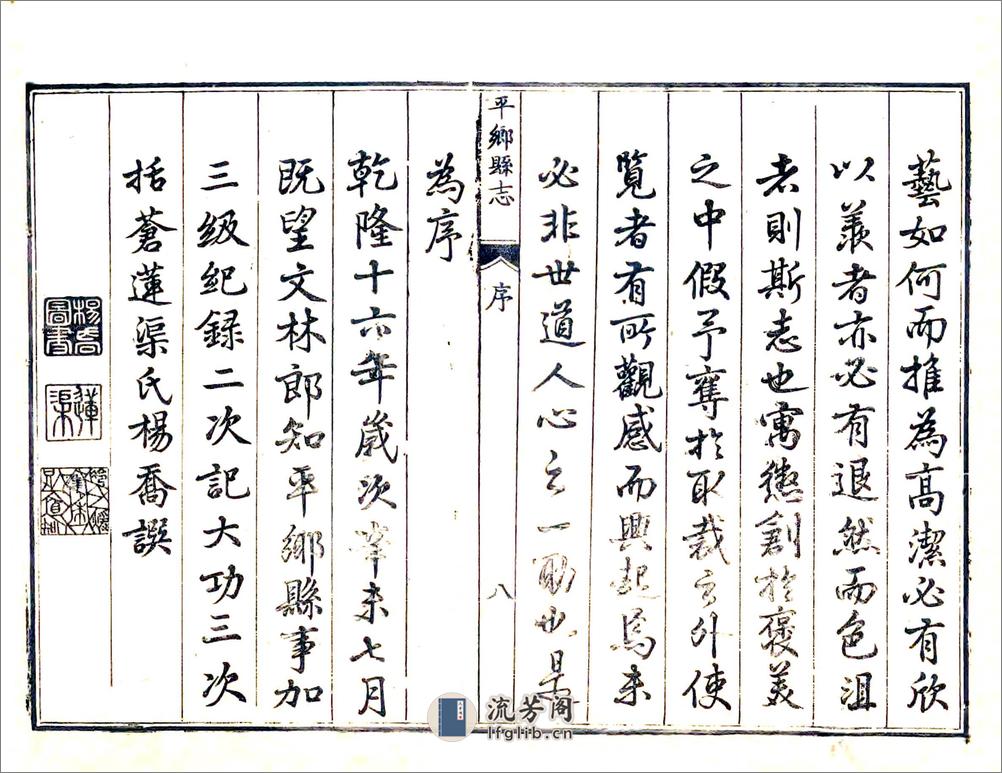 藝如何而推為高潔必有欣
以羨者亦必有退然而色沮
者則斯志也寓懲創於褒美
之中假予奪於取裁之外使
覽者有所觀感而興起焉未
必非世道人心之一助也是
平鄉縣志
序
八
為序
乾隆十六年歲次辛未七月
既望文林郎知平鄉縣事加
三級紀録二次記大功三次
括蒼蓮渠氏楊喬譔
楊喬圖書
蓮渠
流芳阁
lfglib.cn